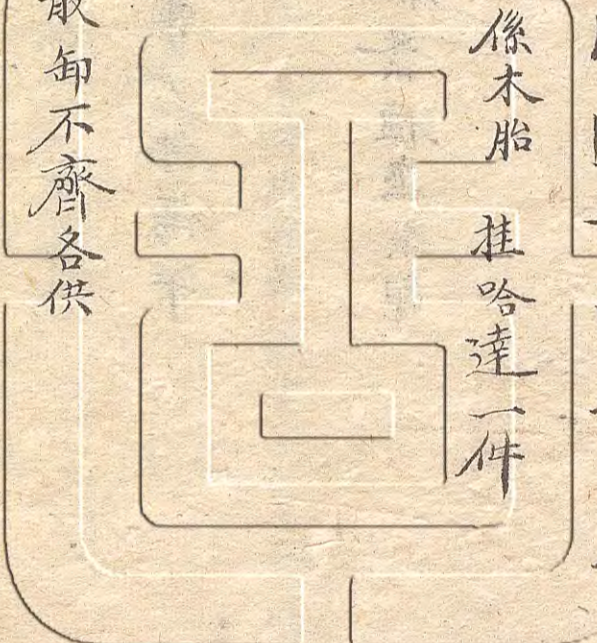 係木胎 挂哈達一件
散卸不齊各供